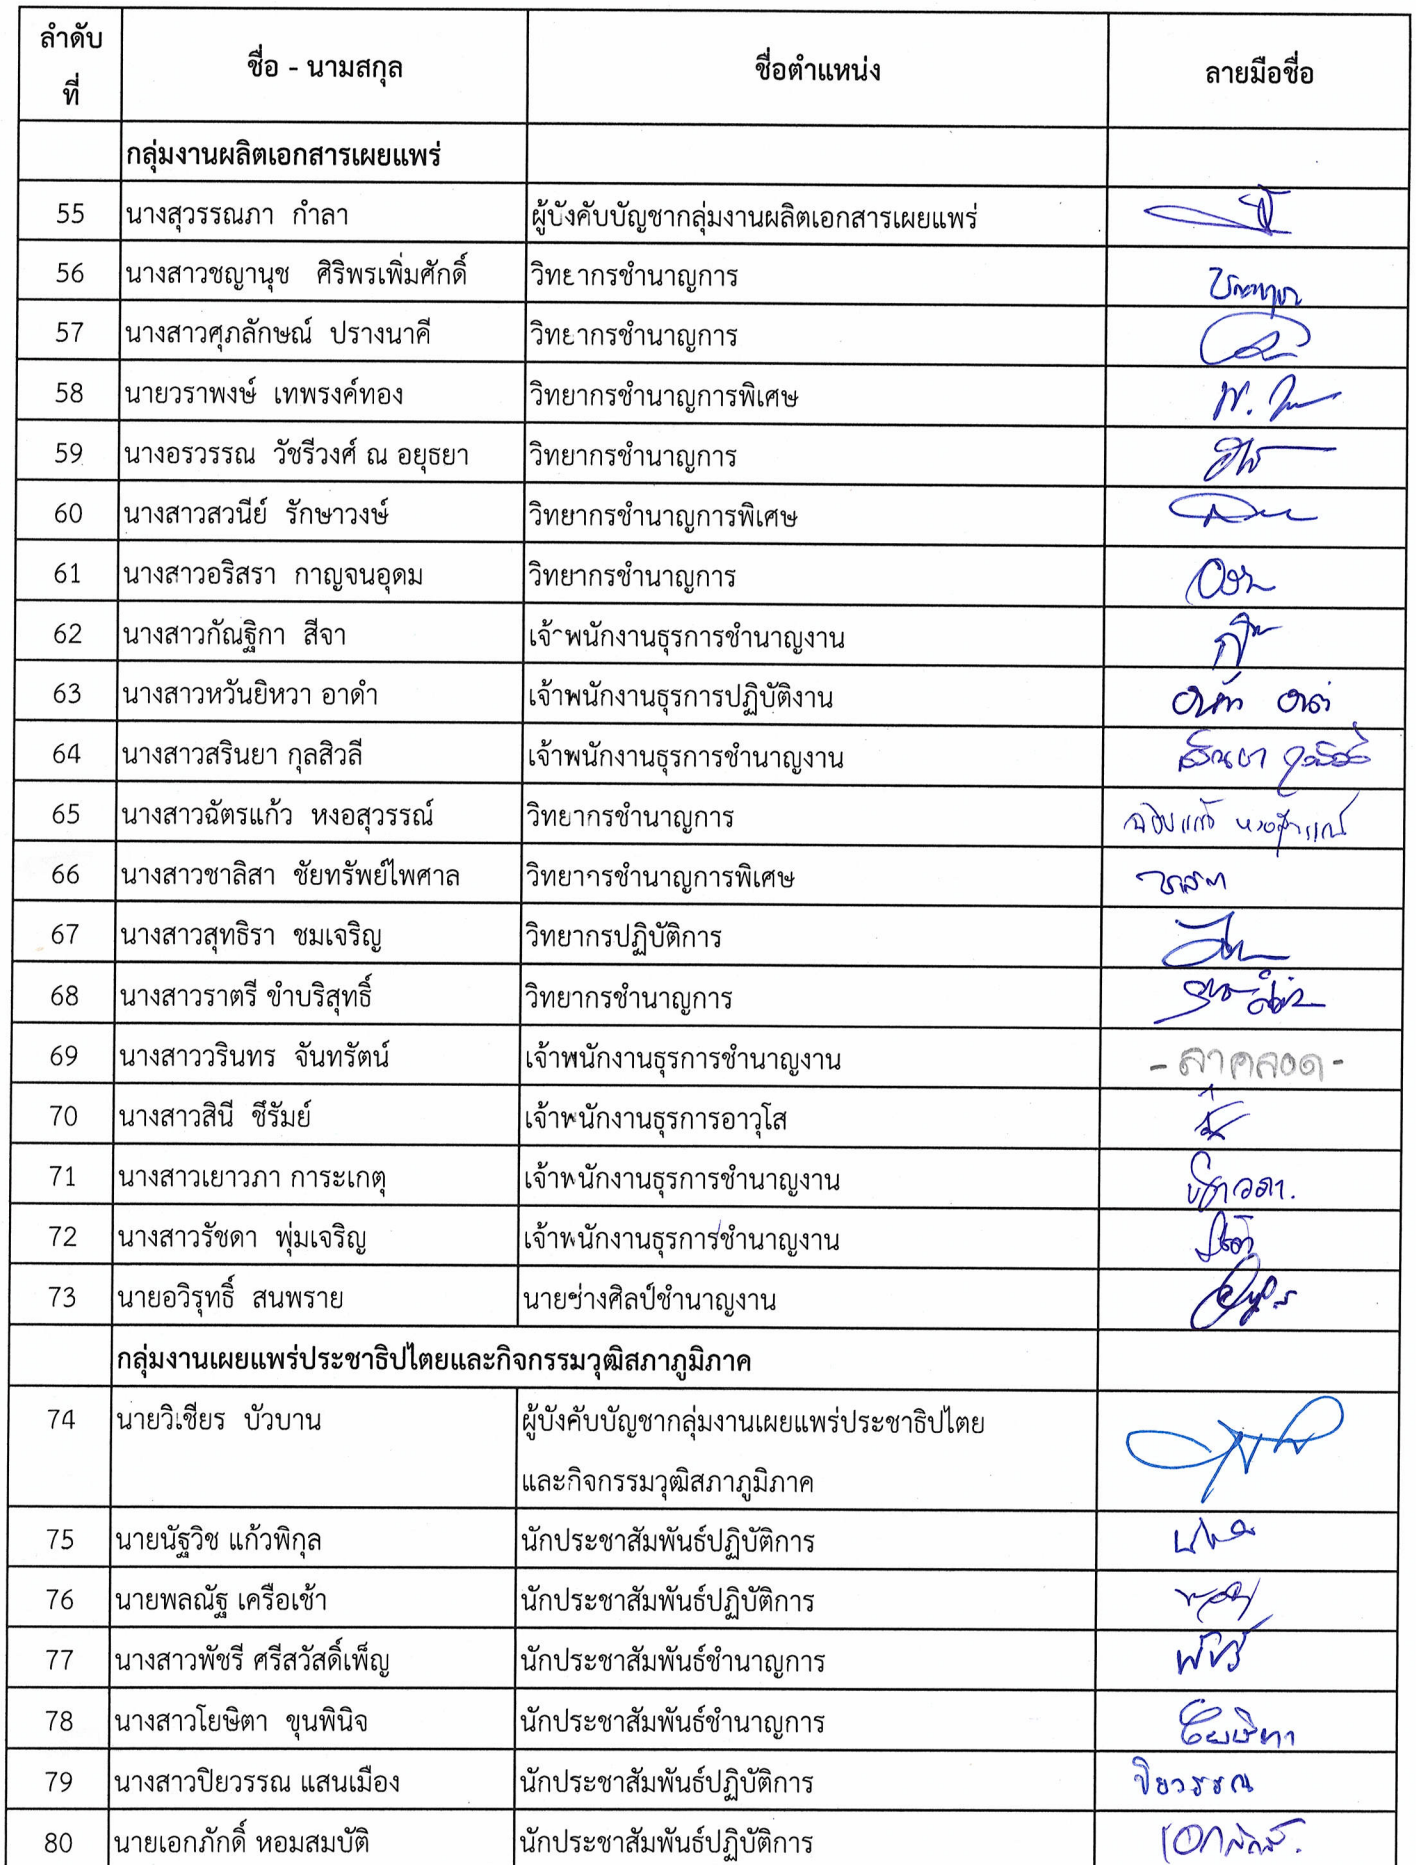 ลำดับที่ ชื่อ - นามสกุล ชื่อตำแหน่ง ลายมือชื่อ
กลุ่มงานผลิตเอกสารเผยแพร่
55 นางสุวรรณภา กำลา ผู้บังคับบัญชากลุ่มงานผลิตเอกสารเผยแพร่
56 นางสาวชญานุช ศิริพรเพิ่มศักดิ์ วิทยากรชำนาญการ
57 นางสาวศุภลักษณ์ ปรางนาคี วิทยากรชำนาญการ
58 นายวราพงษ์ เทพรงค์ทอง วิทยากรชำนาญการพิเศษ
59 นางอรวรรณ วัชรีวงศ์ ณ อยุธยา วิทยากรชำนาญการ
60 นางสาวสวนีย์ รักษาวงษ์ วิทยากรชำนาญการพิเศษ
61 นางสาวอริสรา กาญจนอุดม วิทยากรชำนาญการ
62 นางสาวกัณฐิกา สีจา เจ้าพนักงานธุรการชำนาญงาน
63 นางสาวหวันยิหวา อาดำ เจ้าพนักงานธุรการปฏิบัติงาน
64 นางสาวสรินยา กุลสิวลี เจ้าพนักงานธุรการชำนาญงาน
65 นางสาวฉัตรแก้ว หงอสุวรรณ์ วิทยากรชำนาญการ
66 นางสาวชาลิสา ชัยทรัพย์ไพศาล วิทยากรชำนาญการพิเศษ
67 นางสาวสุทธิรา ชมเจริญ วิทยากรปฏิบัติการ
68 นางสาวราตรี ขำบริสุทธิ์ วิทยากรชำนาญการ
69 นางสาววรินทร จันทรัตน์ เจ้าพนักงานธุรการชำนาญงาน - ลาคลอด -
70 นางสาวสินี ชีรัมย์ เจ้าพนักงานธุรการอาวุโส
71 นางสาวเยาวภา การะเกตุ เจ้าพนักงานธุรการชำนาญงาน
72 นางสาวรัชดา พุ่มเจริญ เจ้าพนักงานธุรการชำนาญงาน
73 นายอวิรุทธิ์ สนพราย นายช่างศิลป์ชำนาญงาน
กลุ่มงานเผยแพร่ประชาธิปไตยและกิจกรรมวุฒิสภาภูมิภาค
74 นายวิเชียร บัวบาน ผู้บังคับบัญชากลุ่มงานเผยแพร่ประชาธิปไตย
และกิจกรรมวุฒิสภาภูมิภาค
75 นายนัฐวิช แก้วพิกุล นักประชาสัมพันธ์ปฏิบัติการ
76 นายพลณัฐ เครือเช้า นักประชาสัมพันธ์ปฏิบัติการ
77 นางสาวพัชรี ศรีสวัสดิ์เพ็ญ นักประชาสัมพันธ์ชำนาญการ พัชรี
78 นางสาวโยษิตา ขุนพินิจ นักประชาสัมพันธ์ชำนาญการ โยษิตา
79 นางสาวปิยวรรณ แสนเมือง นักประชาสัมพันธ์ปฏิบัติการ ปิยวรรณ
80 นายเอกภักดิ์ หอมสมบัติ นักประชาสัมพันธ์ปฏิบัติการ